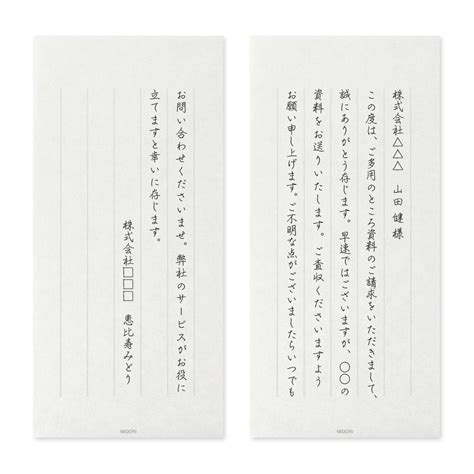 株式会社△△△　山田 健 様
この度は、ご多用のところ資料のご請求をいただきまして、
誠にありがとう存じます。早速ではございますが、〇〇の
資料をお送りいたします。ご査収くださいますよう
お願い申し上げます。ご不明な点がございましたらいつでも
MIDORI
お問い合わせくださいませ。弊社のサービスがお役に
立てますと幸いに存じます。
株式会社□□□　恵比寿みどり
MIDORI